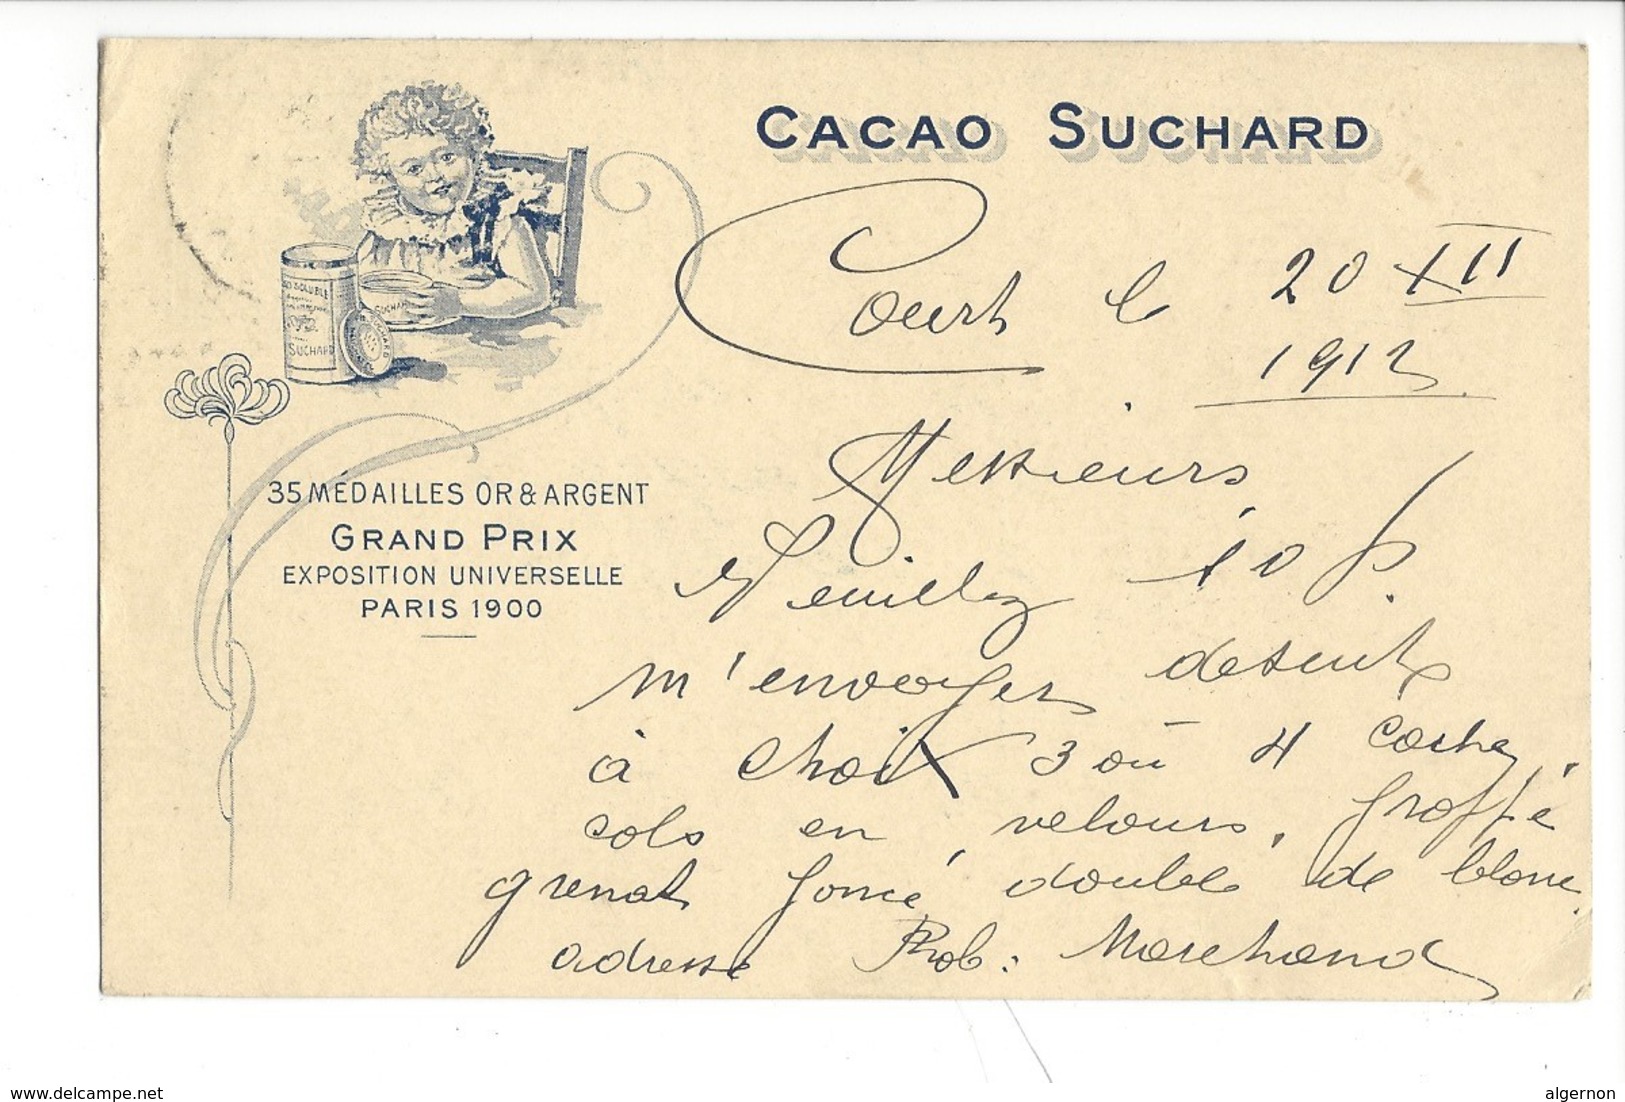 CACAO SUCHARD
SOLUBLE
SUCHARD
SUCHARD
35 MÉDAILLES OR & ARGENT
GRAND PRIX
EXPOSITION UNIVERSELLE
PARIS 1900
Court le 20 XII
1912
Messieurs
Veuillez
m'envoyer desuite
à choix 3 où 4 cache
cols en velours,
grenat foncé double de blanc
adresse Rob: Marchand
http://www.delcampe.net
algernon